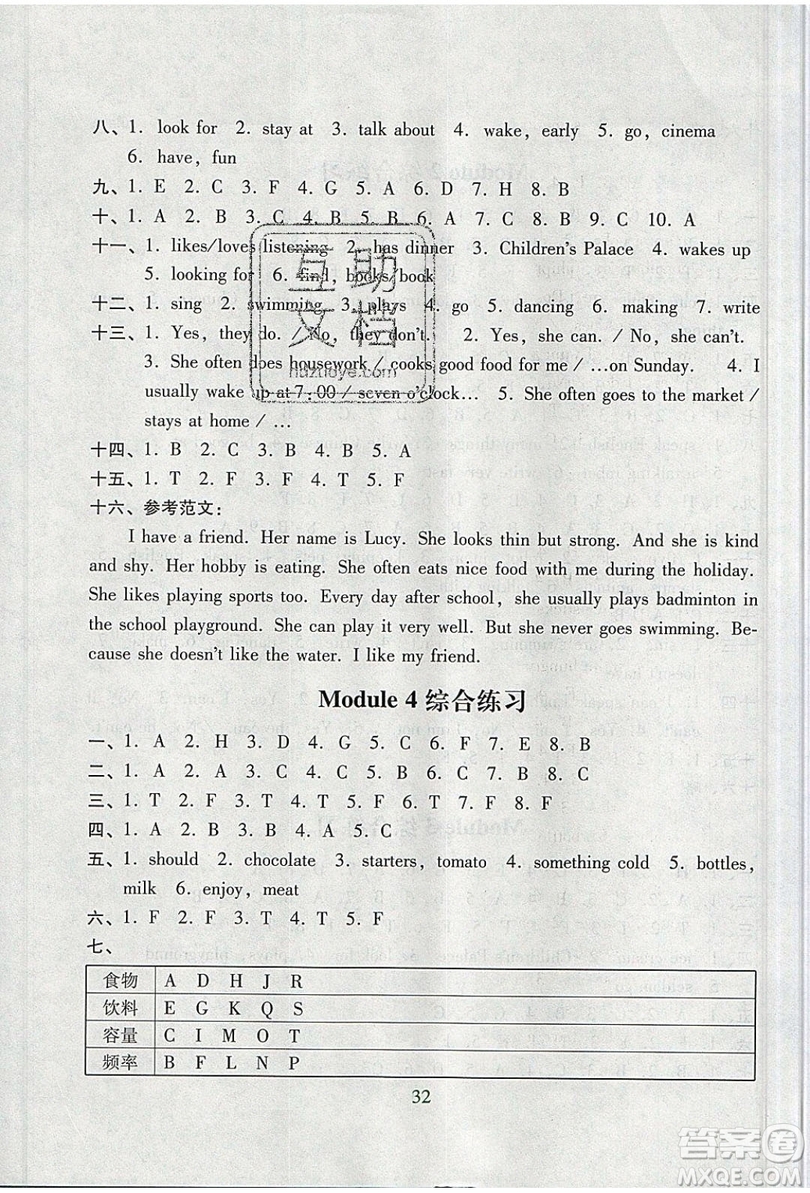 八、1. look for 2. stay at 3. talk about 4. wake, early 5. go, cinema
6. have, fun
九、1. E 2. C 3. F 4. G 5. A 6. D 7. H 8. B
十、1. A 2. B 3. C 4. B 5. B 6. A 7. C 8. B 9. C 10. A
十一、1. likes/loves listening 2. has dinner 3. Children's Palace 4. wakes up
5. looking for 6. find, books/book
十二、1. sing 2. swimming 3. plays 4. go 5. dancing 6. making 7. write
十三、1. Yes, they do. / No, they don't. 2. Yes, she can. / No, she can't.
3. She often does housework / cooks good food for me / …on Sunday. 4. I
usually wake up at 7:00 / seven o'clock… 5. She often goes to the market /
stays at home / …
十四、1. B 2. C 3. B 4. B 5. A
十五、1. T 2. F 3. F 4. T 5. F
十六、参考范文:
I have a friend. Her name is Lucy. She looks thin but strong. And she is kind
and shy. Her hobby is eating. She often eats nice food with me during the holiday.
She likes playing sports too. Every day after school, she usually plays badminton in
the school playground. She can play it very well. But she never goes swimming. Be-
cause she doesn't like the water. I like my friend.
Module 4 综合练习
一、1. A 2. H 3. D 4. G 5. C 6. F 7. E 8. B
二、1. A 2. B 3. A 4. C 5. B 6. C 7. B 8. C
三、1. T 2. F 3. T 4. T 5. F 6. F 7. T 8. F
四、1. A 2. B 3. B 4. A 5. C
五、1. should 2. chocolate 3. starters, tomato 4. something cold 5. bottles,
milk 6. enjoy, meat
六、1. F 2. F 3. T 4. T 5. F
七、
食物 A D H J R
饮料 E G K Q S
容量 C I M O T
频率 B F L N P
32
互助
文档
huzuoye.com
答案圈
MXQE.COM